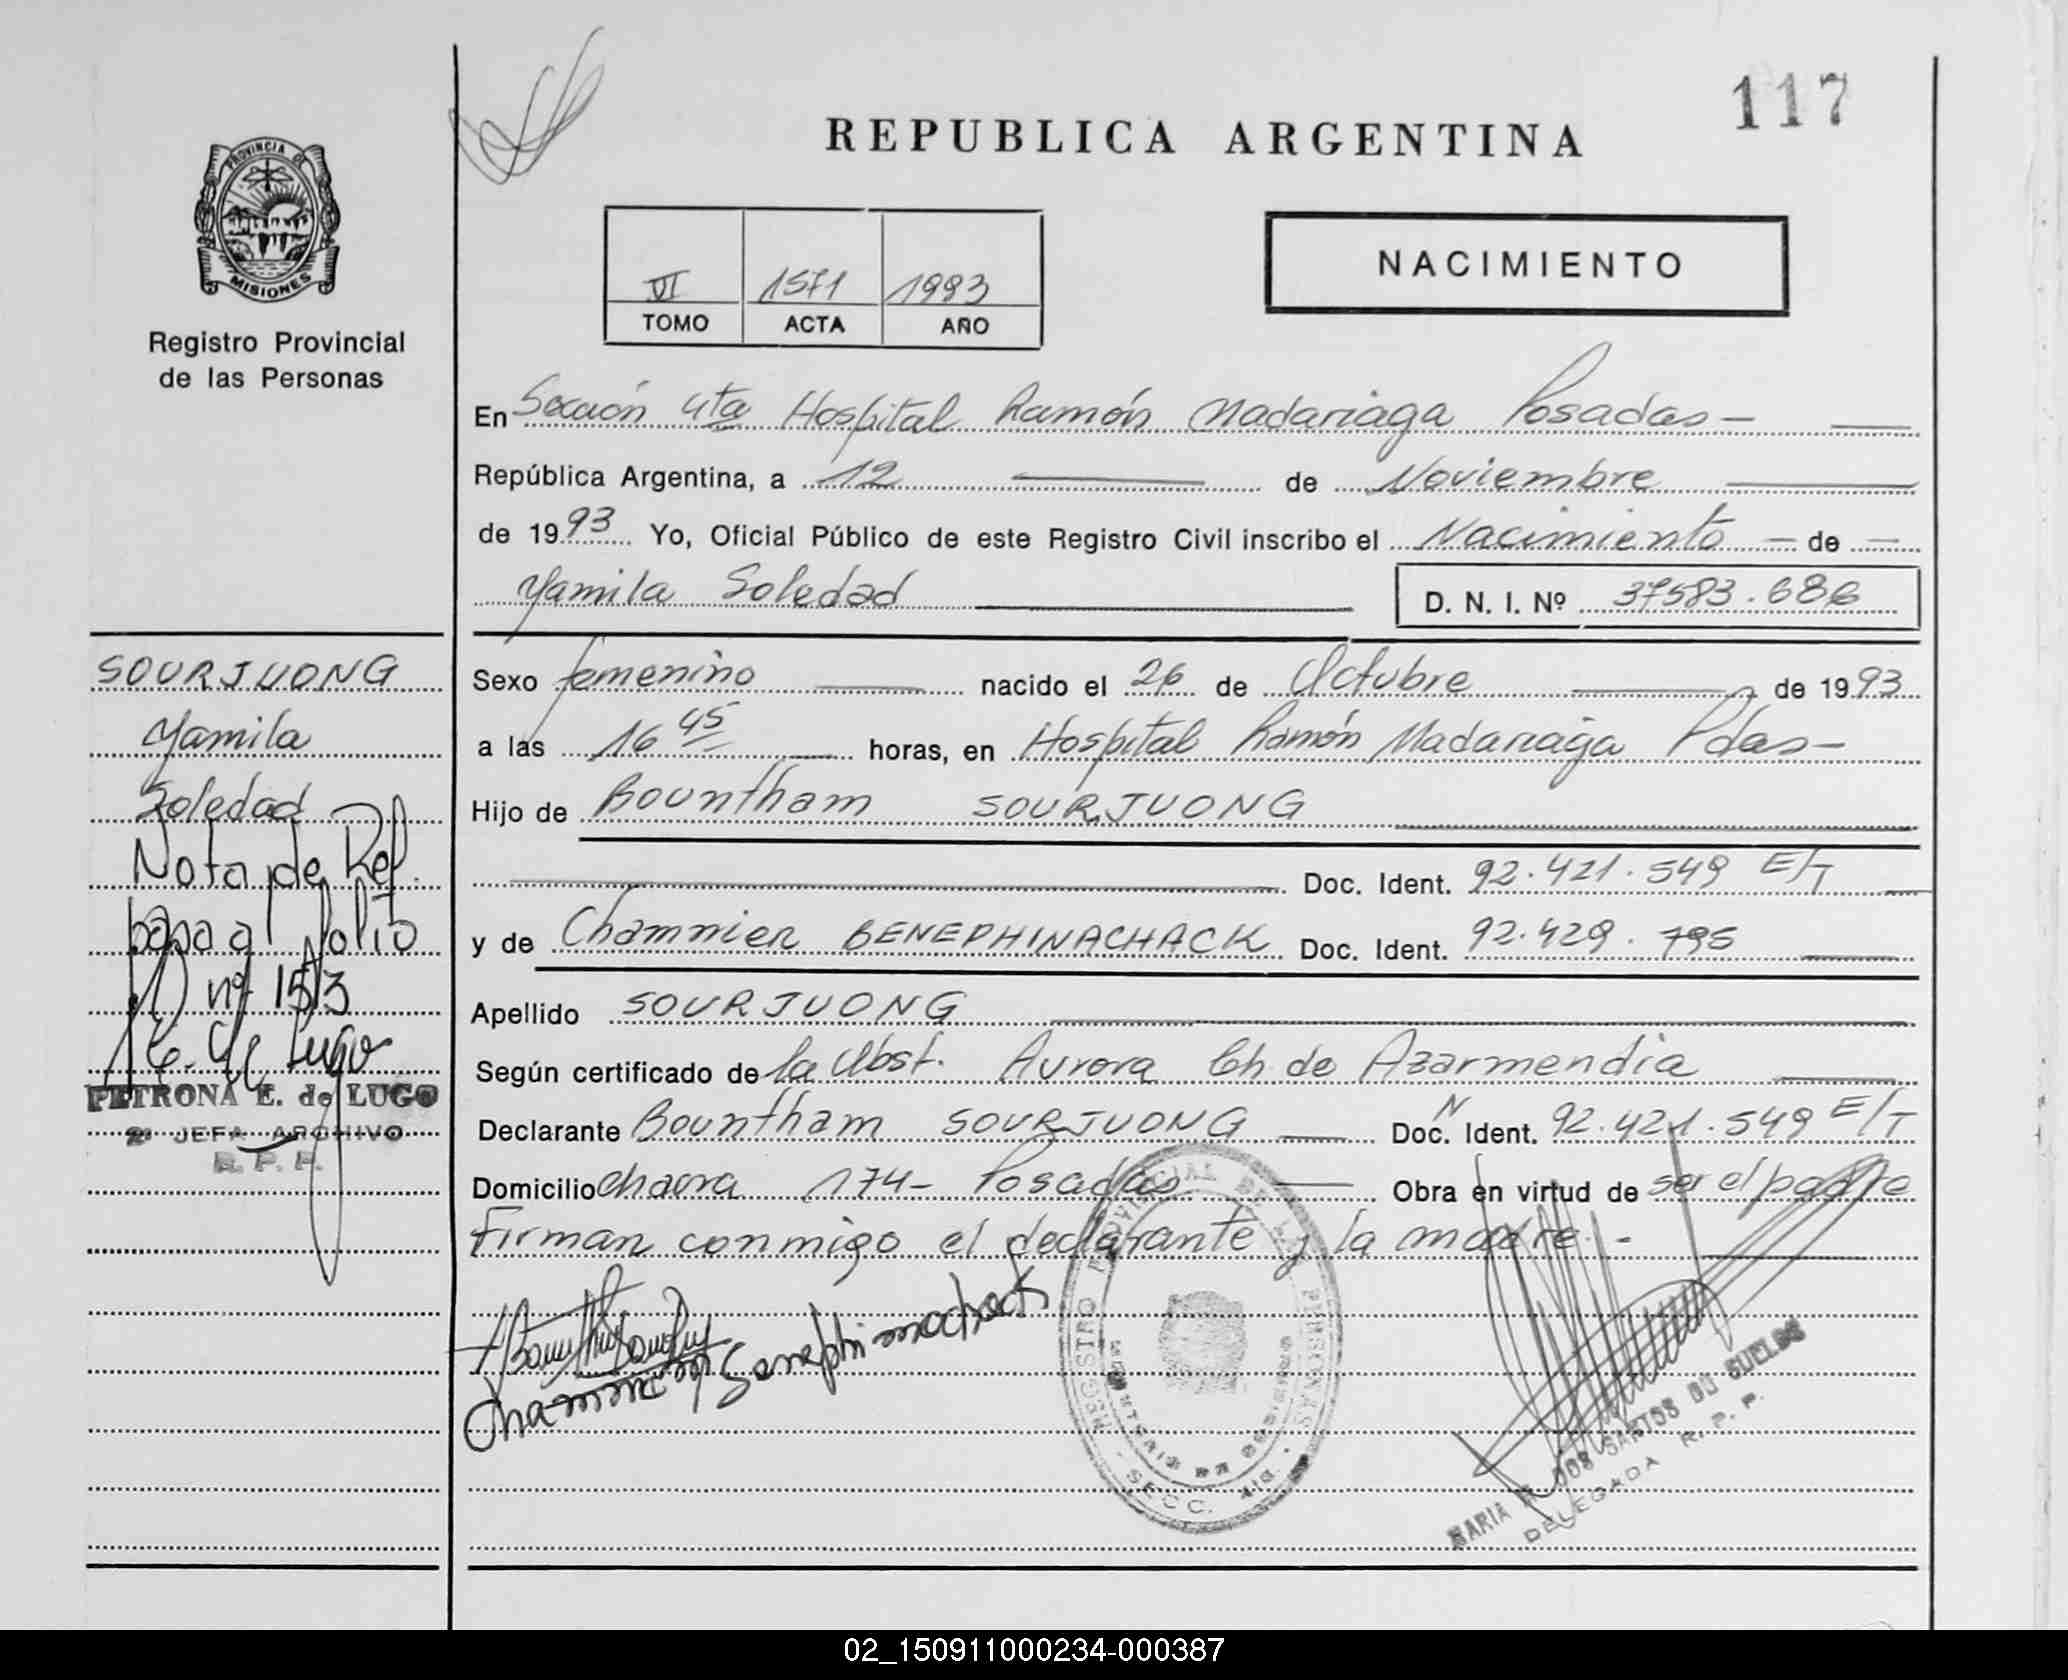 117
REPUBLICA ARGENTINA
PROVINCIA DE
MISIONES
Registro Provincial
de las Personas
NACIMIENTO
VI 1571 1993
TOMO ACTA AÑO
En Sección 4ta Hospital Ramón Madariaga Posadas —
República Argentina, a 12 de Noviembre
de 1993 Yo, Oficial Público de este Registro Civil inscribo el Nacimiento — de —
Yamila Soledad D. N. I. Nº 37583.686
Sexo femenino nacido el 26 de Octubre de 1993
a las 16 45 horas, en Hospital Ramón Madariaga Pdas —
Hijo de Bountham SOURJUONG
Doc. Ident. 92.421.549 E/T
y de Chammien BENEPHINACHACK Doc. Ident. 92.429.795
Apellido SOURJUONG
Según certificado de la Obst. Aurora Ch. de Azarmendia
Declarante Bountham SOURJUONG Doc. Ident. N 92.421.549 E/T
Domicilio chacra 174- Posadas Obra en virtud de ser el padre
Firman conmigo el declarante y la madre. -
SOURJUONG
Yamila
Soledad
Nota de Ref.
pasa al folio
nº 1513
PETRONA E. de LUGO
2º JEFA ARCHIVO
R. P. P.
REGISTRO PROVINCIAL DE LAS PERSONAS
SECC.
MARIA DOS SANTOS DE SUELDO
DELEGADA
R. P. P.
02_150911000234-000387